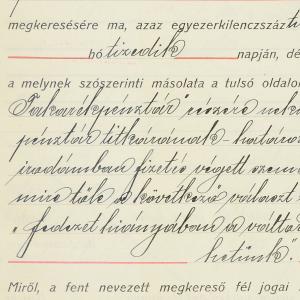 megkeresésére ma, azaz egyezerkilencszáz
hó tizedik napján, dé
a melynek szószerinti másolata a tulsó oldalo
Takarékpénztár részére
pénztár titkárának határo
irodámban fizetés végett szem
mire tőle a következő választ
„fedezet hiányában a váltó
hetünk".
Miről, a fent nevezett megkereső fél jogai